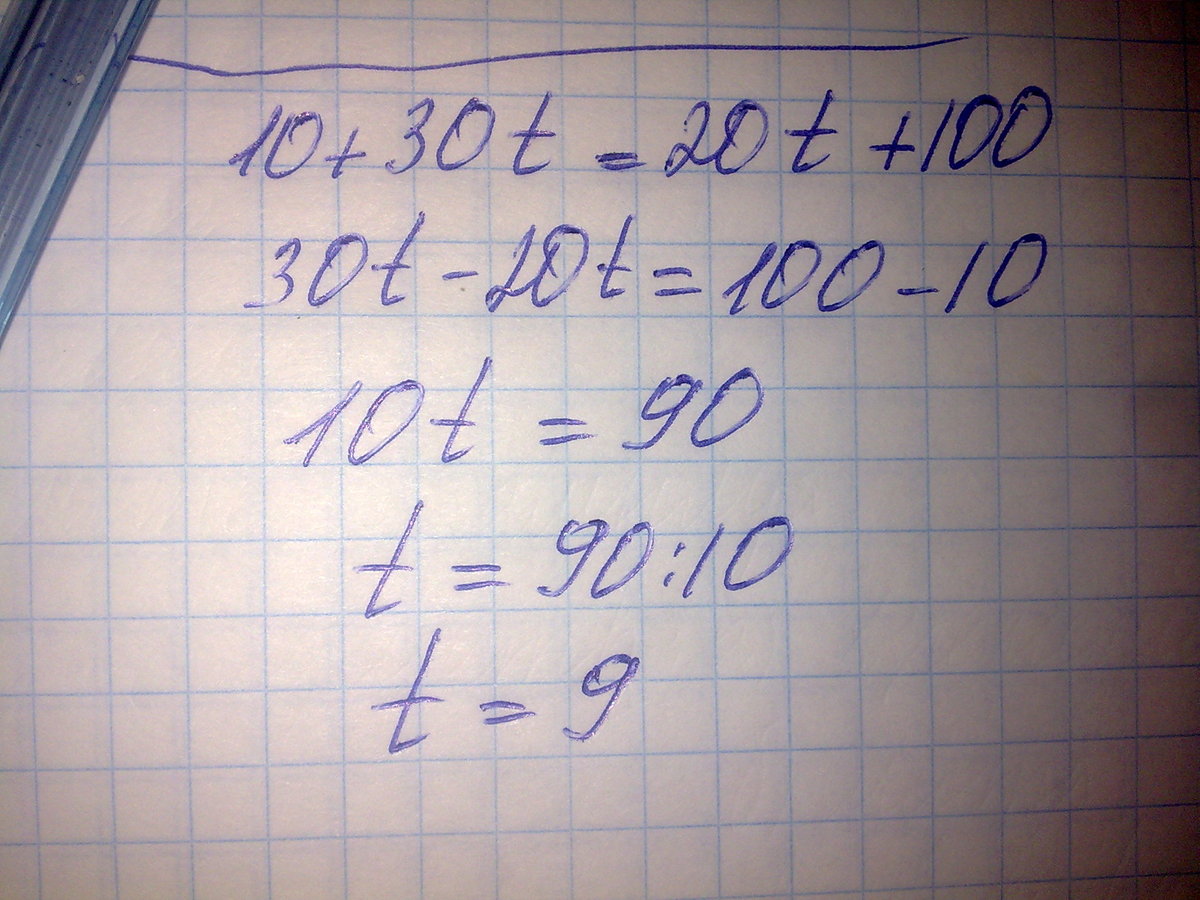 10+30t=20t+100
30t-20t=100-10
10t=90
t=90:10
t=9